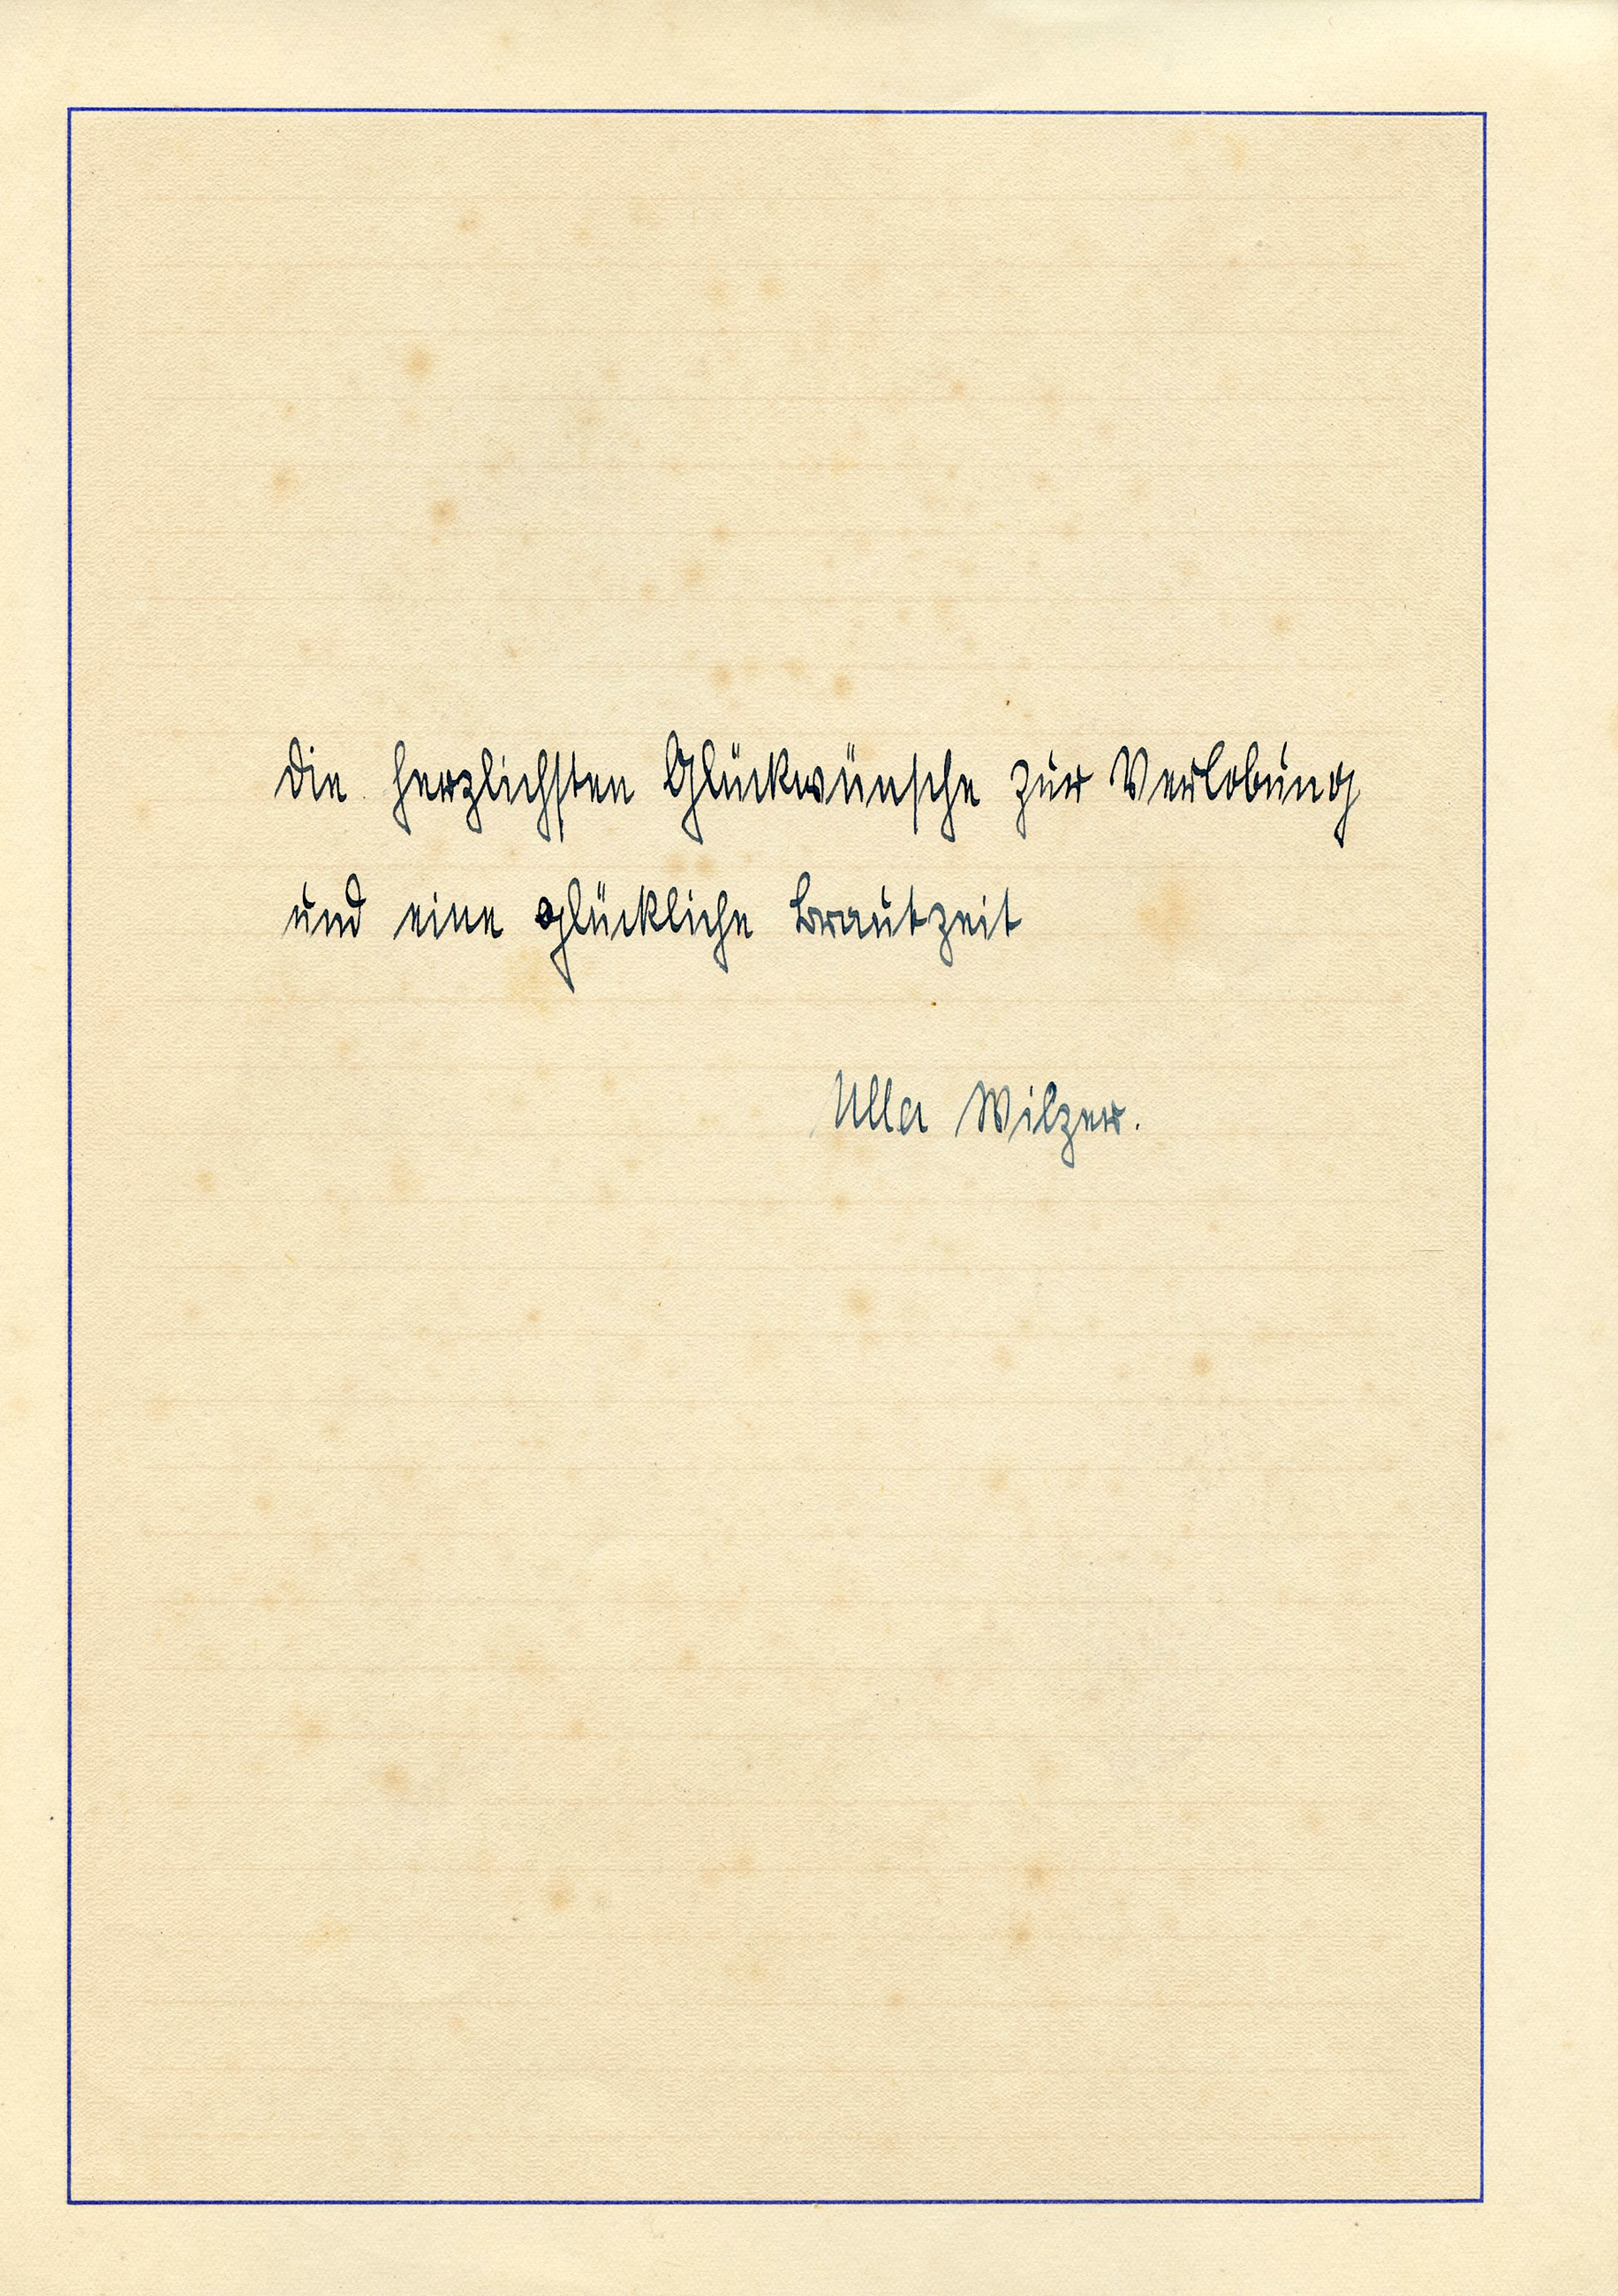 Die herzlichsten Glückwünsche zur Verlobung
und eine glückliche Brautzeit
Ulla Wilzer.